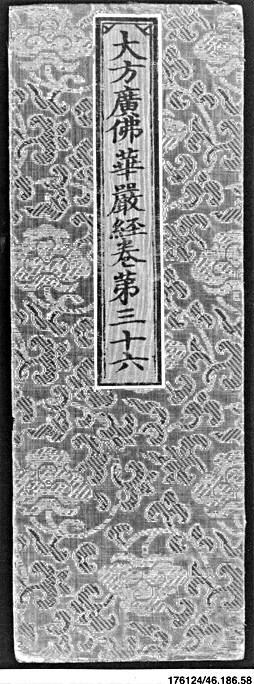 大方廣佛華嚴經卷第三十六
176124/46.186.58